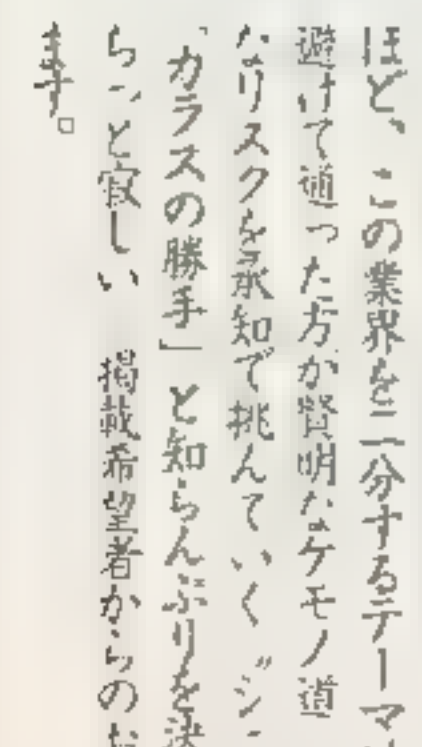 ほど、この業界を二分するテーマ
避けて通った方が賢明なケモノ道
なリスクを承知で挑んでいく〝ジ
「カラスの勝手」と知らんぷりを決
らっと寂しい 掲載希望者からのお
ます。